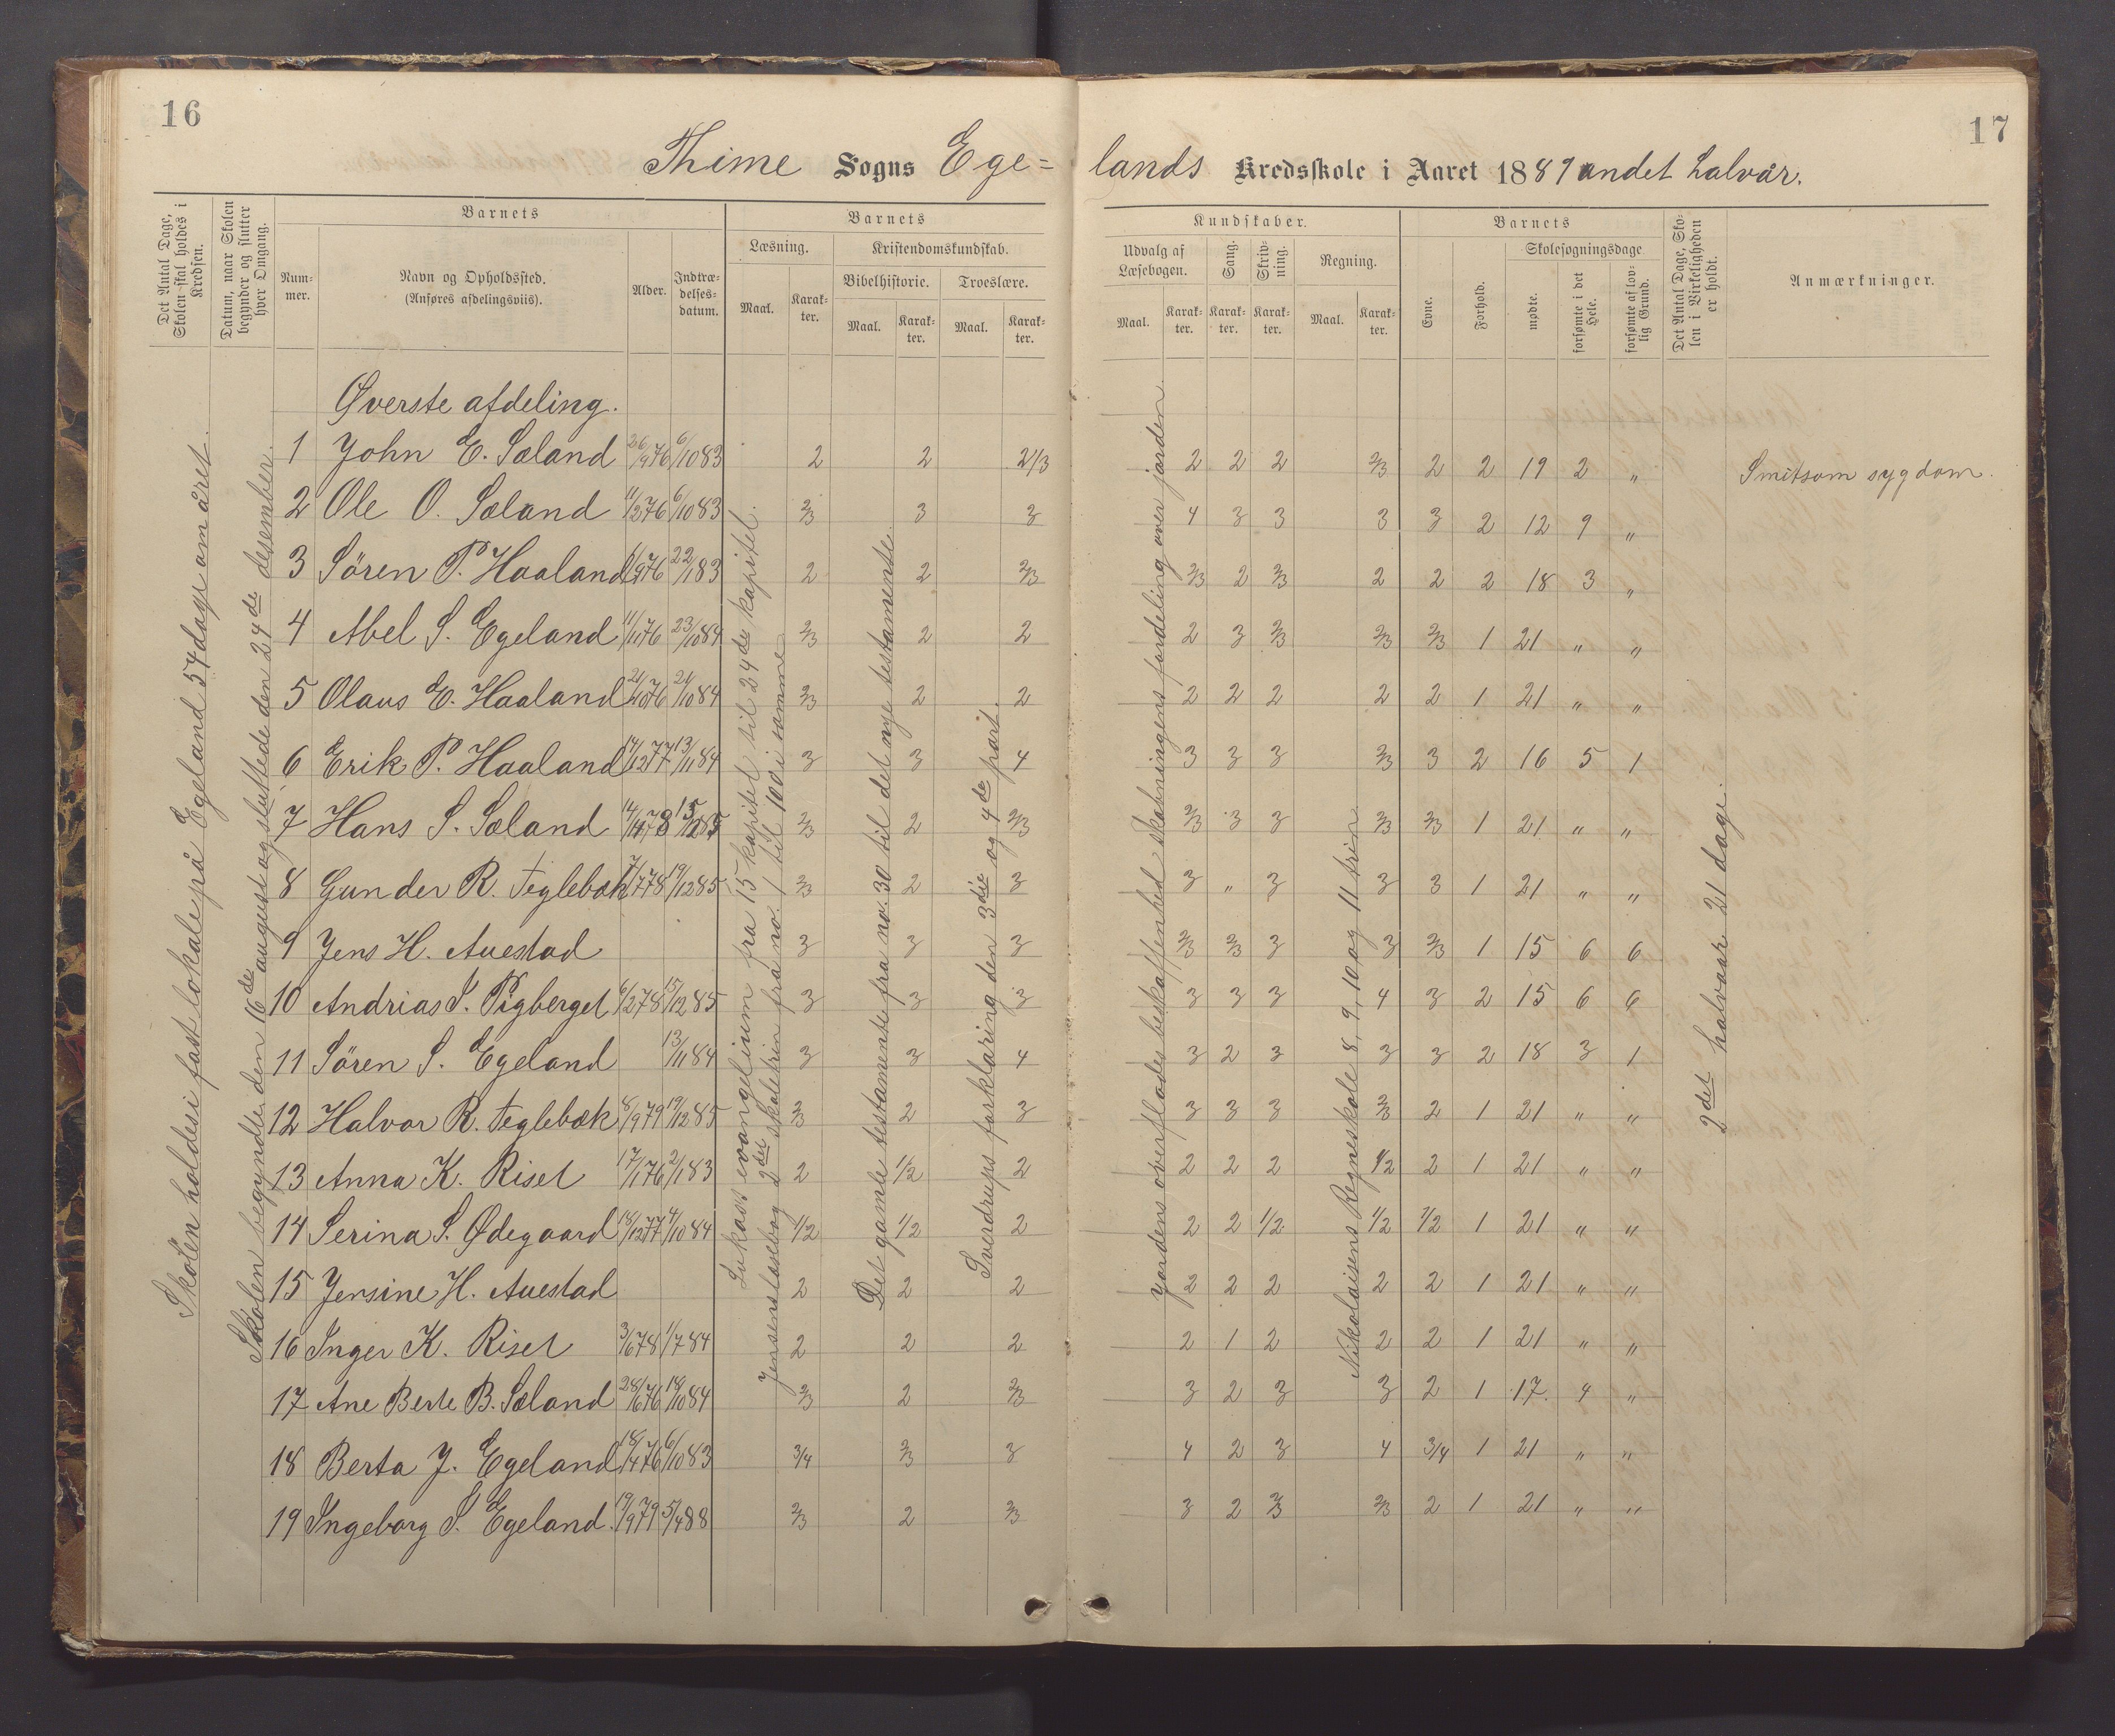 16
17
Thime Sogns Ege=
lands Kredsskole i Aaret 1889 andet halvår.
Det Antal Dage, Skolen skal holdes i Kredsen.
Datum, naar Skolen begynder og slutter hver Omgang.
Barnets
Num-mer.
Navn og Opholdssted. (Anføres afdelingsviis).
Alder.
Indtræ-delses-datum.
Barnets
Læsning.
Kristendomskundskab.
Bibelhistorie.
Troeslære.
Maal. Karak-ter. Maal. Karak-ter. Maal. Karak-ter.
Kundskaber.
Udvalg af Læsebogen.
Sang.
Skriv-ning.
Regning.
Maal. Karak-ter. Karak-ter. Karak-ter. Maal. Karak-ter.
Barnets
Evne.
Forhold.
Skolesøgningsdage
mødte.
forsømte i det Hele.
forsømte af lov-lig Grund.
Det Antal Dage, Sko-len i Virkeligheden er holdt.
Anmærkninger.
Skolen holdes i fast lokale på Egeland 54 dage om året.
Skolen begyndte den 16de august og sluttede den 24de desember.
Lukass evangelium fra 15 kapitel til 24de kapitel.
Jensens læsebog 2det skoletrin fra no. 1 til 100 i samme
Det gamle testamente fra no. 30 til det nye testamente.
Sverdrups forklaring den 3die og 4de part.
Jordens overflades beskaffenhed skabningens fordeling over jorden
Nikolaisens Regneskole 8, 9, 10 og 11 trin
2det halvaar 21 dage.
Øverste afdeling.
1 John E. Sæland 26/9 76 6/10 83 2 2 2/3 2 2 2 2/3 2 2 19 2 " Smitsom sygdom.
2 Ole O. Sæland 11/2 76 6/10 83 2/3 3 3 4 3 3 3 3 2 12 9 "
3 Sören P. Haaland 76 22/1 83 2 2 2/3 2/3 2 2/3 2 2 2 18 3 "
4 Abel S. Egeland 76 23/10 84 2/3 2 2 2 3 2/3 2/3 2/3 1 21 " "
5 Olaus E. Haaland 21/10 76 21/10 84 2/3 2 2 2 2 2 2 2 1 21 " "
6 Erik P. Haaland 14/12 77 13/11 84 3 3 4 3 3 3 2/3 3 2 16 5 1
7 Hans S. Sæland 78 15/12 85 2/3 2 2/3 2/3 3 3 2/3 2/3 1 21 " "
8 Gunder R. Teglebæk 7/7 78 19/12 85 2/3 2 3 3 " 3 3 3 1 21 " "
9 Jens H. Auestad 3 3 3 2/3 2/3 3 3 2/3 1 15 6 6
10 Andrias S. Pigberget 6/2 78 15/12 85 3 3 3 3 3 3 4 3 2 15 6 6
11 Sören S. Egeland 13/11 84 3 3 4 3 2 3 3 3 2 18 3 1
12 Halvor R. Teglebæk 8/9 79 19/12 85 2/3 2 3 3 3 3 2/3 2 1 21 " "
13 Anna K. Risel 17/1 76 2/1 83 2 1/2 2 2 2 2 1/2 2 1 21 " "
14 Serina S. Ødegaard 18/12 77 4/10 84 1/2 1/2 2 2 2 1/2 1/2 1/2 1 21 " "
15 Jensine H. Auestad 2 2 2 2 2 2 2 2 1 21 " "
16 Inger K. Risel 3/6 78 1/7 84 2 2 2 2 1 2 2 2 1 21 " "
17 Ane Berte B. Sæland 28/6 76 18/10 84 2/3 2 2/3 3 2 3 3 2 1 17 4 "
18 Berta J. Egeland 18/4 76 6/10 83 3/4 2/3 3 4 2 3 4 3/4 1 21 " "
19 Ingeborg S. Egeland 19/9 79 5/4 88 2/3 2 2/3 3 2 2/3 2/3 2 1 21 " "